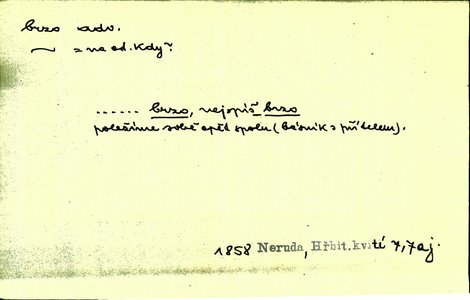 brzo adv.
~ = na ot. kdy?
...... brzo, nejspíš brzo
poležíme sobě opět spolu (básník s přítelem).
1858 Neruda, Hřbit. kvítí 7, 7 aj.